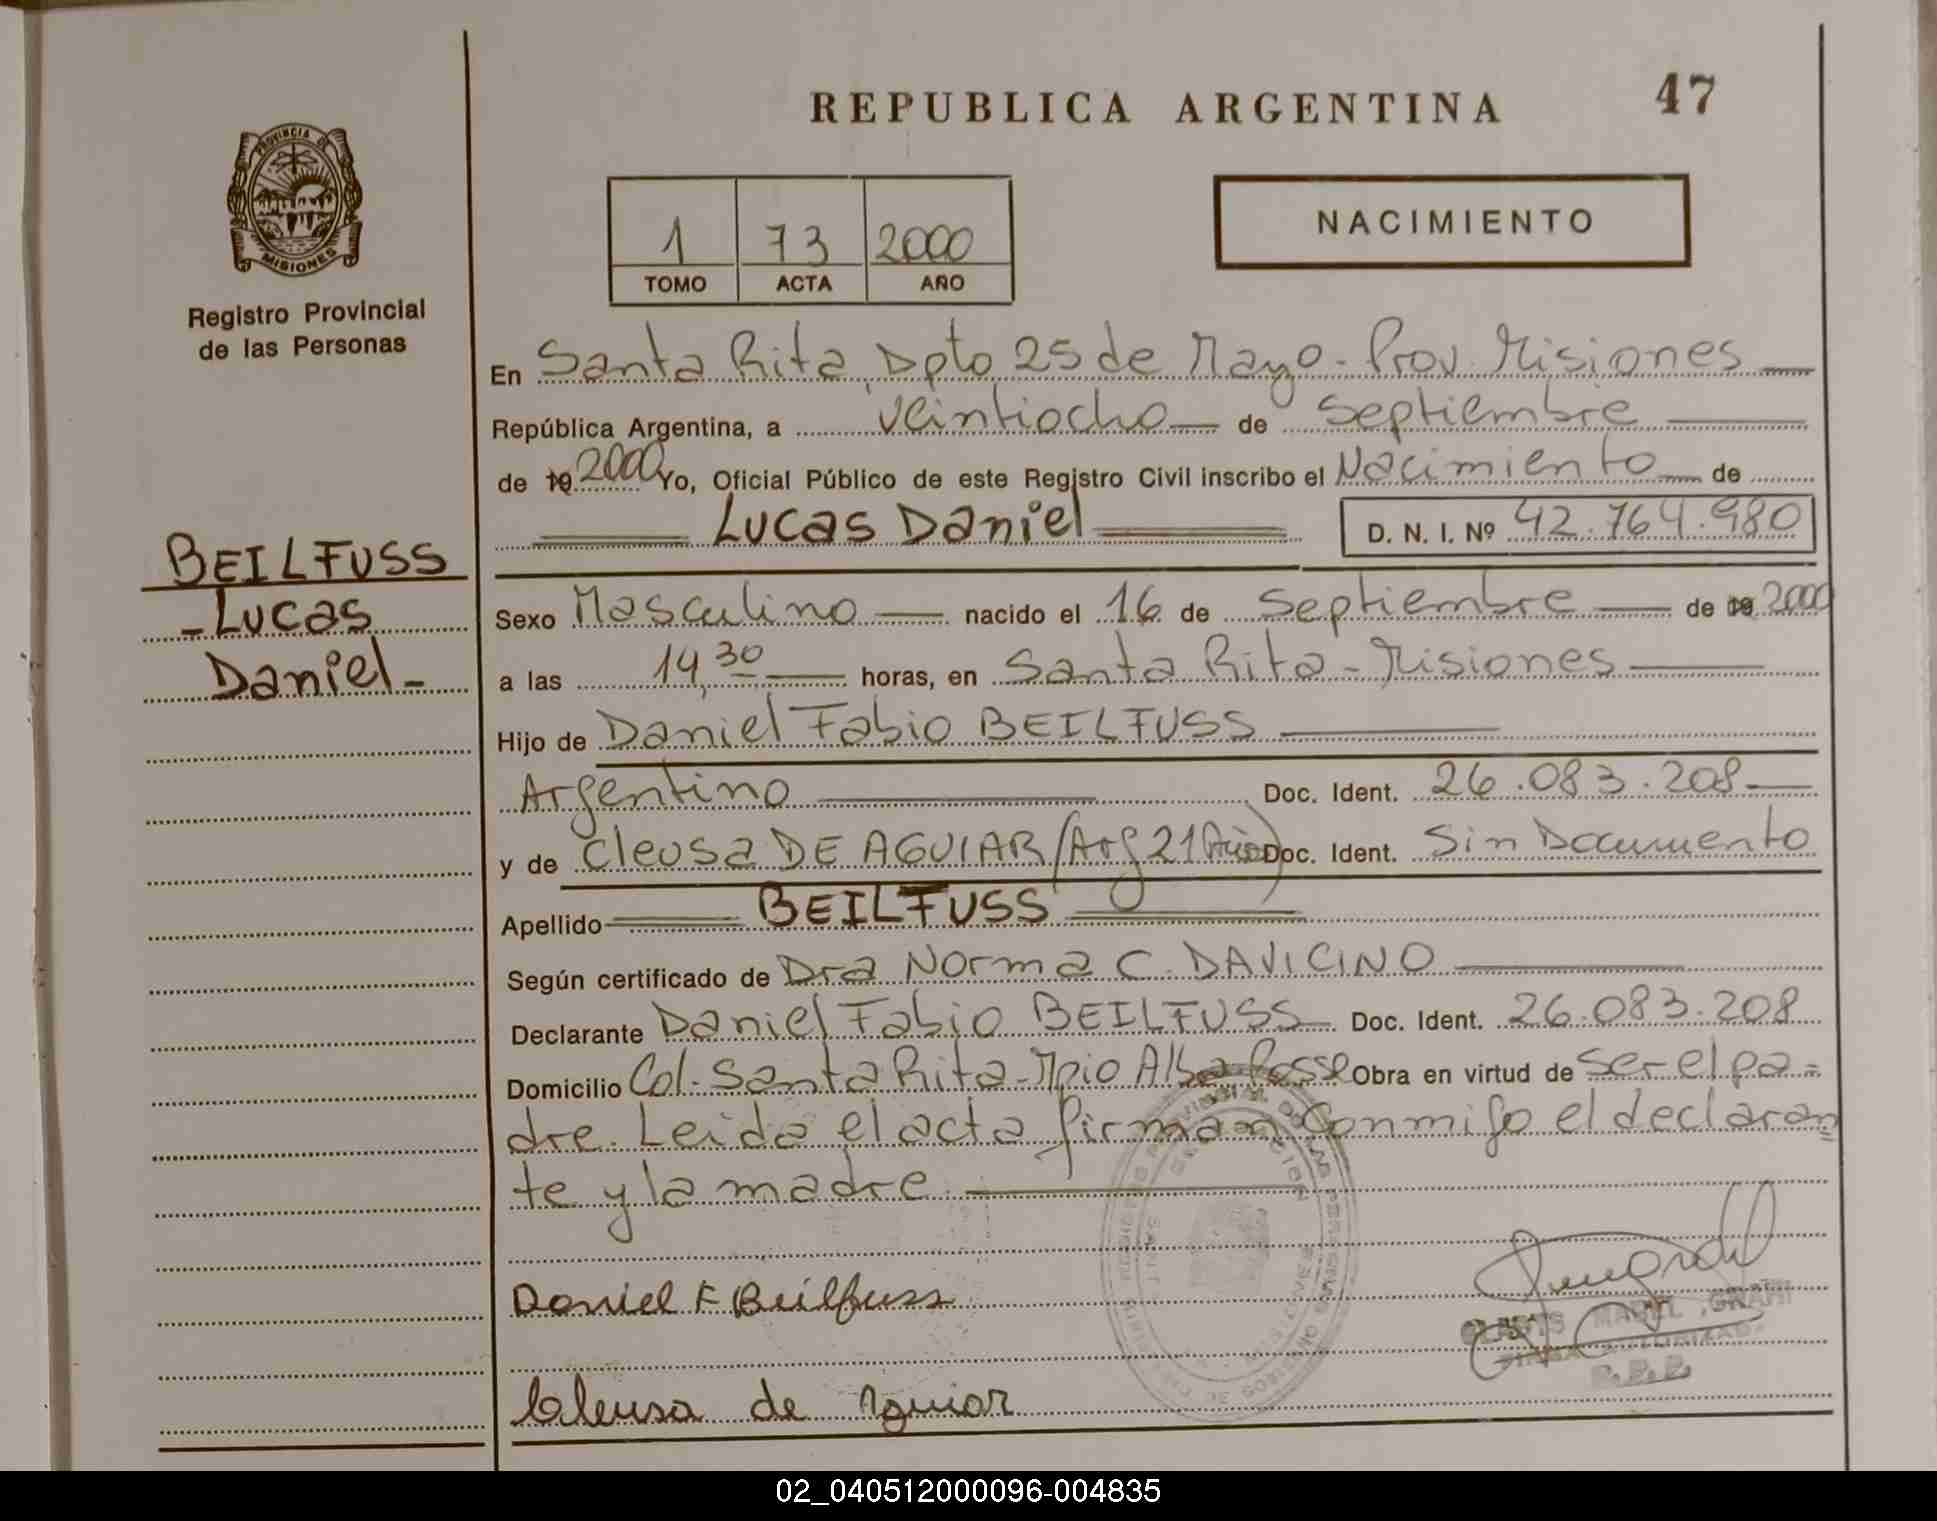 REPUBLICA ARGENTINA
47
PROVINCIA DE
MISIONES
Registro Provincial
de las Personas
1 73 2000
TOMO ACTA AÑO
NACIMIENTO
En Santa Rita, Dpto 25 de Mayo - Prov. Misiones
República Argentina, a veintiocho de septiembre
de 19 2000 Yo, Oficial Público de este Registro Civil inscribo el Nacimiento de
Lucas Daniel D. N. I. Nº 42.764.980
BEILFUSS
Lucas
Daniel
Sexo Masculino nacido el 16 de septiembre de 19 2000
a las 14,30 horas, en Santa Rita - Misiones
Hijo de Daniel Fabio BEILFUSS
Argentino Doc. Ident. 26.083.208
y de Cleusa DE AGUIAR (Arg 21 Años) Doc. Ident. Sin Documento
Apellido BEILFUSS
Según certificado de Dra Norma C. DAVICINO
Declarante Daniel Fabio BEILFUSS Doc. Ident. 26.083.208
Domicilio Col. Santa Rita - Mpio Alba Posse Obra en virtud de ser el pa=
dre. Leida el acta firman conmigo el declaran=
te y la madre.
Daniel F Beilfuss
GLADYS MABEL
Cleusa de Aguiar
02_040512000096-004835